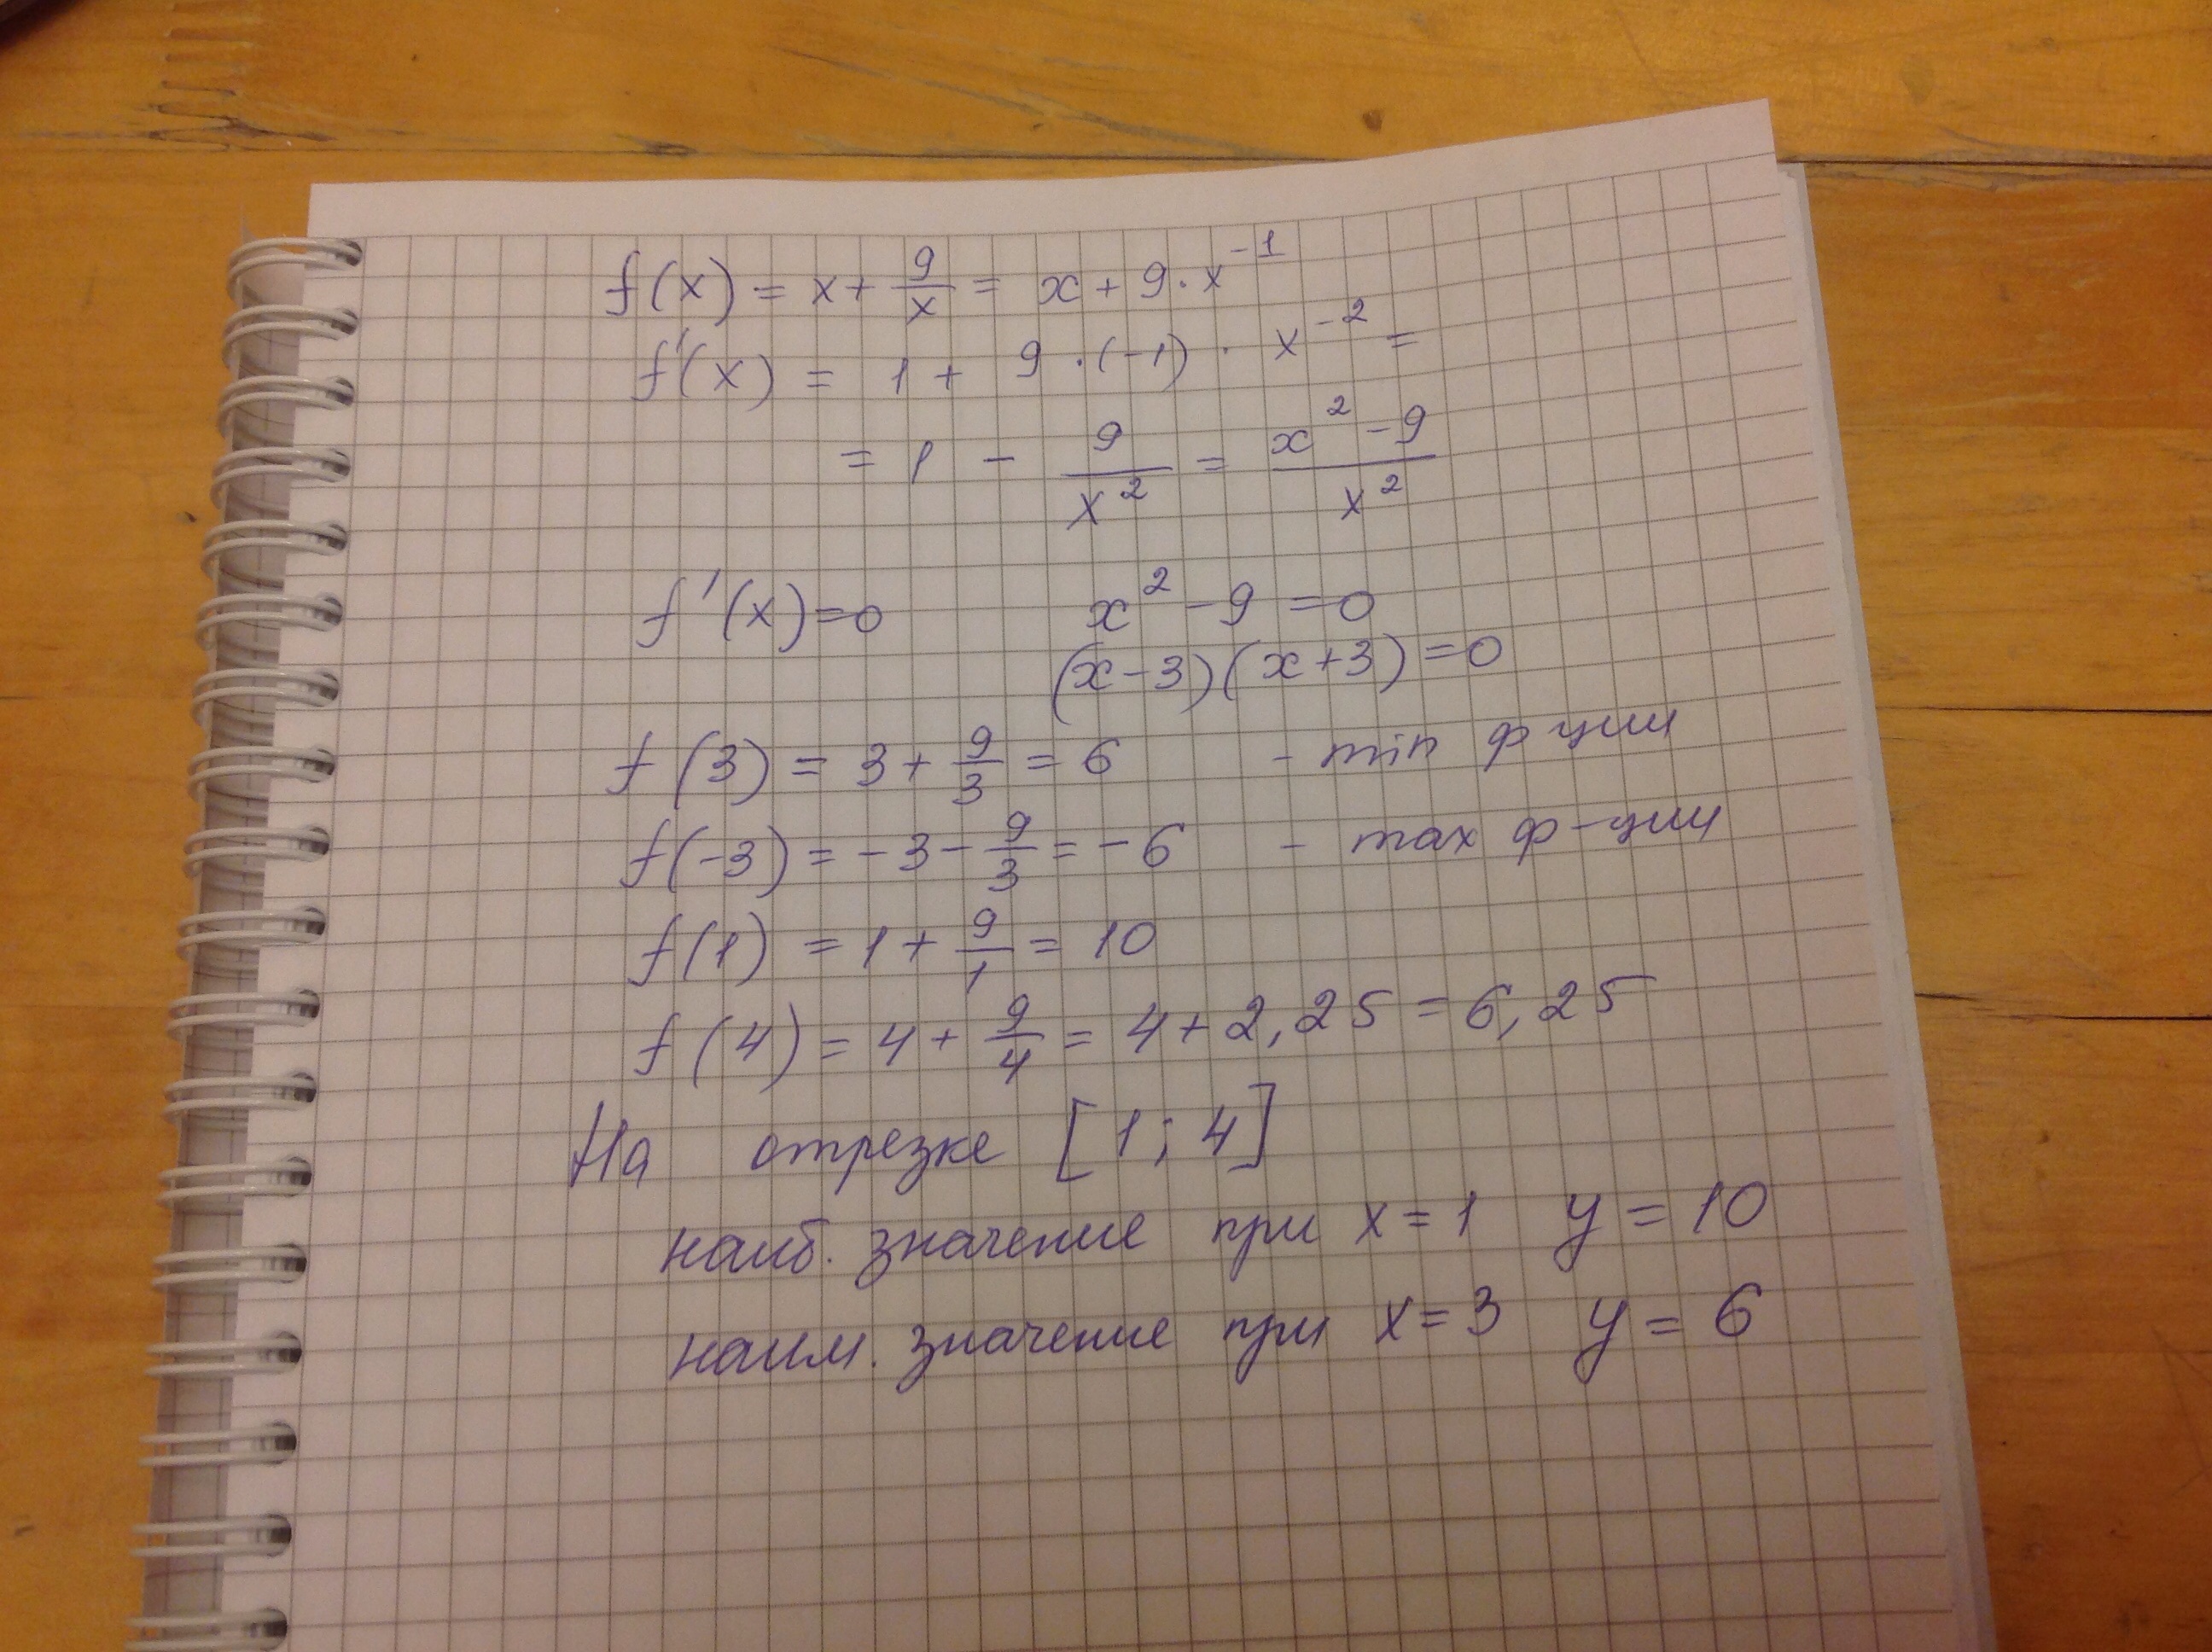 f(x) = x + 9/x = x + 9 · x⁻¹
f'(x) = 1 + 9 · (-1) · x⁻² =
= 1 - 9/x² = (x² - 9)/x²
f'(x) = 0 x² - 9 = 0
(x - 3)(x + 3) = 0
f(3) = 3 + 9/3 = 6 - min ф ции
f(-3) = -3 - 9/3 = -6 - max ф-ции
f(1) = 1 + 9/1 = 10
f(4) = 4 + 9/4 = 4 + 2,25 = 6,25
На отрезке [1; 4]
наиб. значение при x = 1 y = 10
наим. значение при x = 3 y = 6